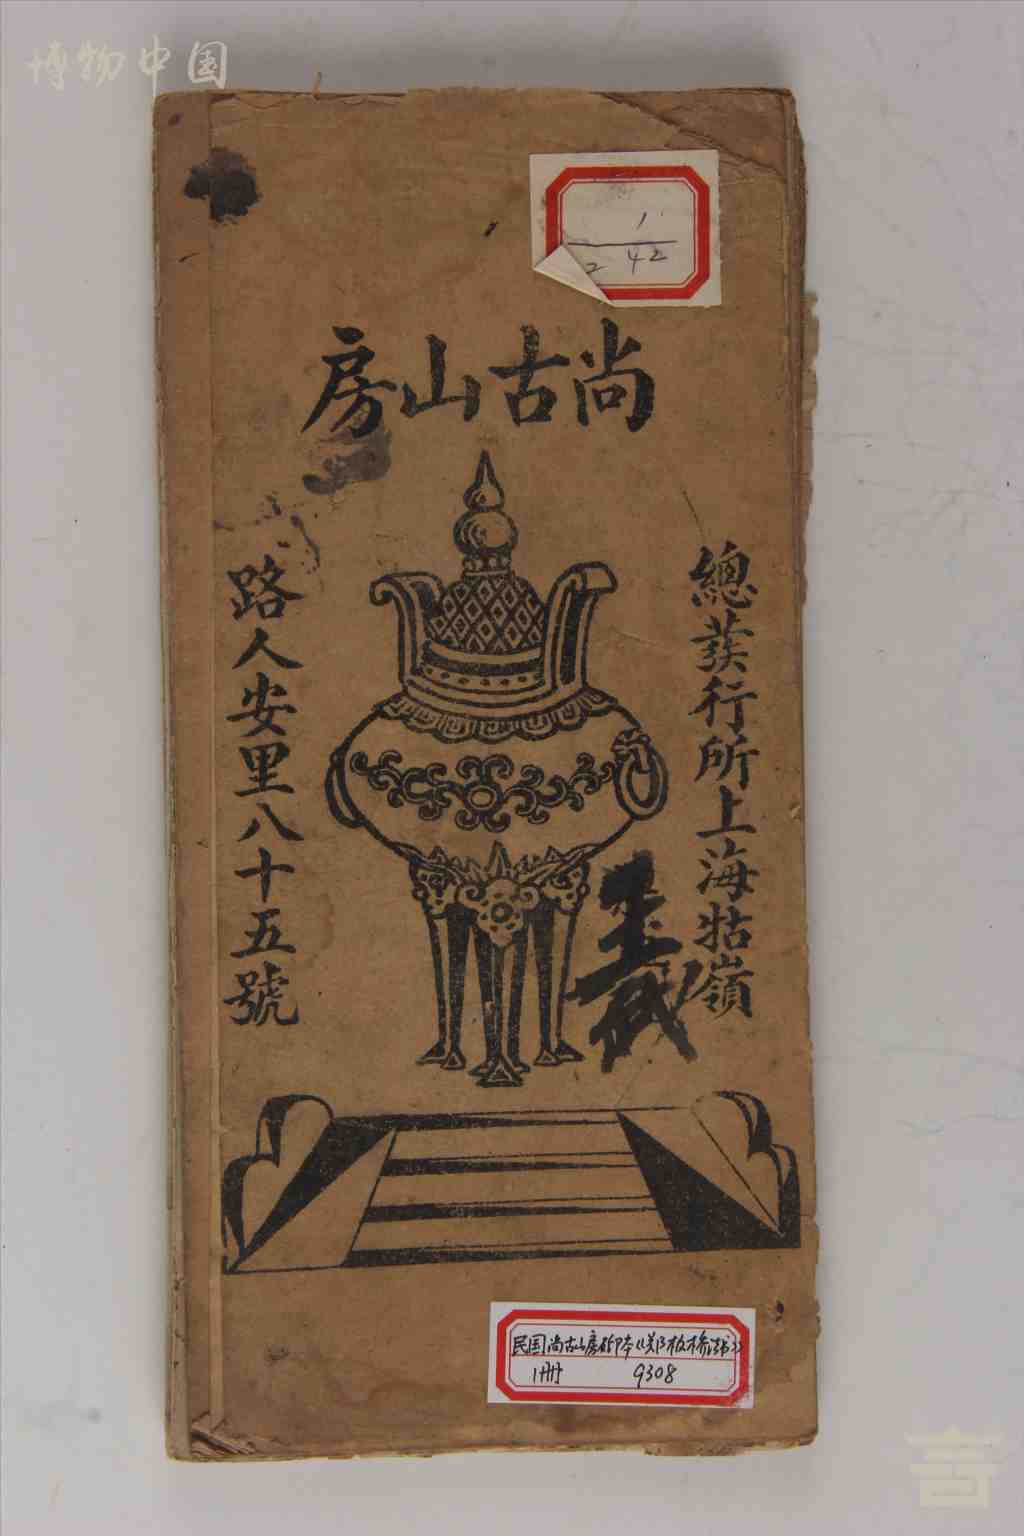 博物中国
1
2 42
尚古山房
總發行所上海牯嶺
路人安里八十五號
民国尚古山房石印本《郑板桥法书》
1册 9308